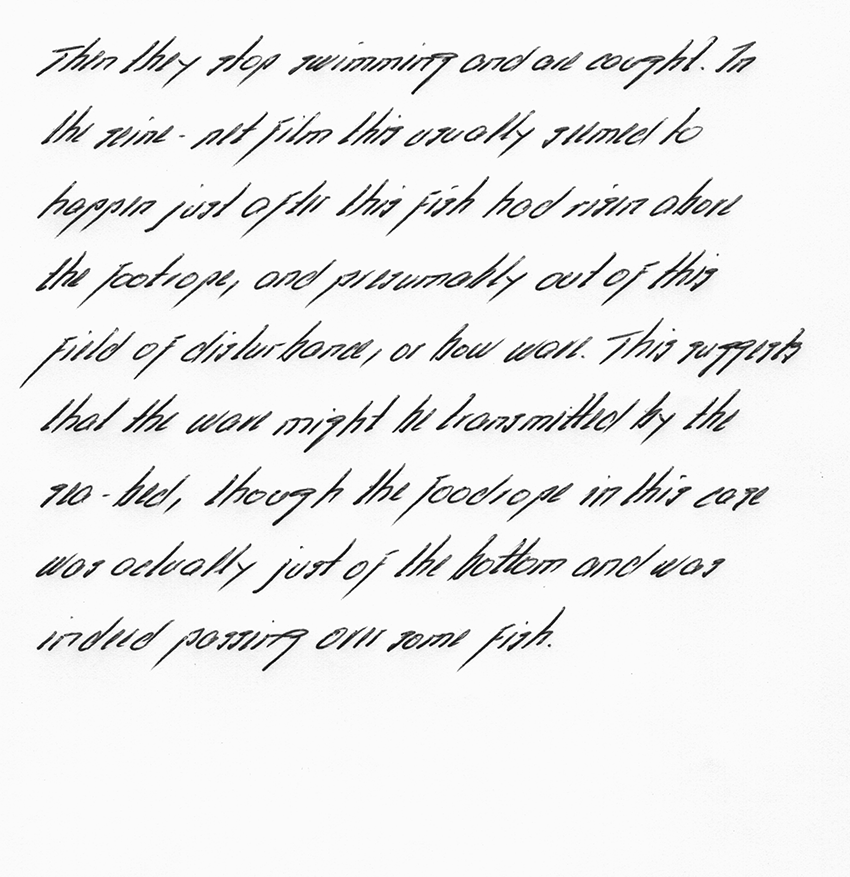 Then they stop swimming and are caught. In
the seine-net film this usually seemed to
happen just after this fish had risen above
the footrope, and presumably out of this
field of disturbance, or bow wave. This suggests
that the wave might be transmitted by the
sea-bed, though the foodrope in this case
was actually just of the bottom and was
indeed passing over some fish.